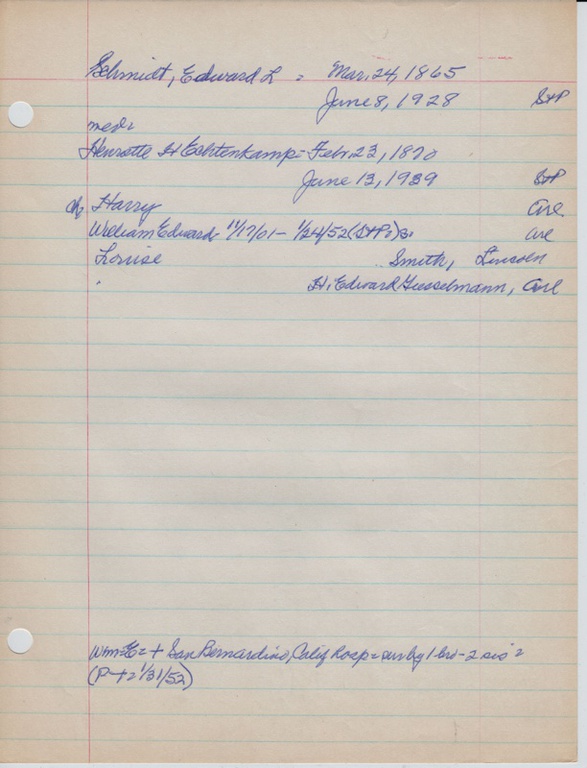 Schmidt, Edward L = Mar. 24, 1865
June 8, 1928 StP
med=
Henrotte H Echtenkamp = Febr. 23, 1870
June 13, 1939 StP
ch= Harry Arl
William Edward= 11/17/01 - 1/24/52 (StP=) Arl
Louise Smith, Lincoln
H. Edward Gusselmann, Arl
Wm E= + San Bernardino, Calif hosp = sur by 1 bro - 2 sis =
(P += 1/31/52)